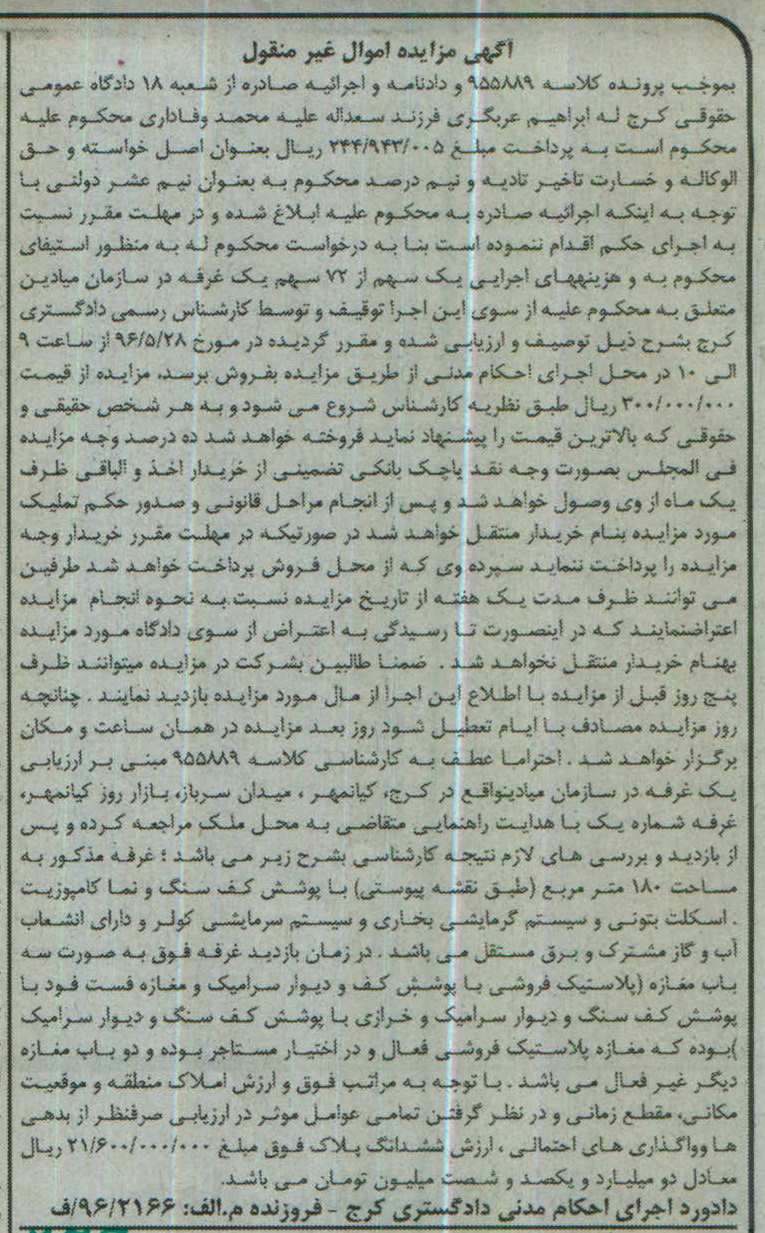 آگهی مزایده اموال غیر منقول
بموجب پرونده کلاسه ۹۵۵۸۸۹ و دادنامه و اجرائیه صادره از شعبه ۱۸ دادگاه عمومی
حقوقی کرج له ابراهیم عربگری فرزند سعداله علیه محمد وفاداری محکوم علیه
محکوم است به پرداخت مبلغ ۲۴۴/۹۴۳/۰۰۵ ریال بعنوان اصل خواسته و حق
الوکاله و خسارت تاخیر تادیه و نیم درصد محکوم به بعنوان نیم عشر دولتی با
توجه به اینکه اجرائیه صادره به محکوم علیه ابلاغ شده و در مهلت مقرر نسبت
به اجرای حکم اقدام ننموده است بنا به درخواست محکوم له به منظور استیفای
محکوم به و هزینههای اجرایی یک سهم از ۷۲ سهم یک غرفه در سازمان میادین
متعلق به محکوم علیه از سوی این اجرا توقیف و توسط کارشناس رسمی دادگستری
کرج بشرح ذیل توصیف و ارزیابی شده و مقرر گردیده در مورخ ۹۶/۵/۲۸ از ساعت ۹
الی ۱۰ در محل اجرای احکام مدنی از طریق مزایده بفروش برسد، مزایده از قیمت
۳۰۰/۰۰۰/۰۰۰ ریال طبق نظریه کارشناس شروع می شود و به هر شخص حقیقی و
حقوقی که بالاترین قیمت را پیشنهاد نماید فروخته خواهد شد ده درصد وجه مزایده
فی المجلس بصورت وجه نقد یاچک بانکی تضمینی از خریدار اخذ و الباقی ظرف
یک ماه از وی وصول خواهد شد و پس از انجام مراحل قانونی و صدور حکم تملیک
مورد مزایده بنام خریدار منتقل خواهد شد در صورتیکه در مهلت مقرر خریدار وجه
مزایده را پرداخت ننماید سپرده وی که از محل فروش پرداخت خواهد شد طرفین
می توانند ظرف مدت یک هفته از تاریخ مزایده نسبت به نحوه انجام مزایده
اعتراضنمایند که در اینصورت تا رسیدگی به اعتراض از سوی دادگاه مورد مزایده
بهنام خریدار منتقل نخواهد شد . ضمنا طالبین بشرکت در مزایده میتوانند ظرف
پنج روز قبل از مزایده با اطلاع این اجرا از مال مورد مزایده بازدید نمایند . چنانچه
روز مزایده مصادف با ایام تعطیل شود روز بعد مزایده در همان ساعت و مکان
برگزار خواهد شد . احتراما عطف به کارشناسی کلاسه ۹۵۵۸۸۹ مبنی بر ارزیابی
یک غرفه در سازمان میادینواقع در کرج، کیانمهر ، میدان سرباز، بازار روز کیانمهر،
غرفه شماره یک با هدایت راهنمایی متقاضی به محل ملک مراجعه کرده و پس
از بازدید و بررسی های لازم نتیجه کارشناسی بشرح زیر می باشد ؛ غرفه مذکور به
مساحت ۱۸۰ متر مربع (طبق نقشه پیوستی) با پوشش کف سنگ و نما کامپوزیت
. اسکلت بتونی و سیستم گرمایشی بخاری و سیستم سرمایشی کولر و دارای انشعاب
آب و گاز مشترک و برق مستقل می باشد . در زمان بازدید غرفه فوق به صورت سه
باب مغازه (پلاستیک فروشی با پوشش کف و دیوار سرامیک و مغازه فست فود با
پوشش کف سنگ و دیوار سرامیک و خرازی با پوشش کف سنگ و دیوار سرامیک
)بوده که مغازه پلاستیک فروشی فعال و در اختیار مستاجر بوده و دو باب مغازه
دیگر غیر فعال می باشد . با توجه به مراتب فوق و ارزش املاک منطقه و موقعیت
مکانی، مقطع زمانی و در نظر گرفتن تمامی عوامل موثر در ارزیابی صرفنظر از بدهی
ها وواگذاری های احتمالی ، ارزش ششدانگ پلاک فوق مبلغ ۲۱/۶۰۰/۰۰۰/۰۰۰ ریال
معادل دو میلیارد و یکصد و شصت میلیون تومان می باشد.
دادورد اجرای احکام مدنی دادگستری کرج - فروزنده م.الف: ۹۶/۲۱۶۶/ف